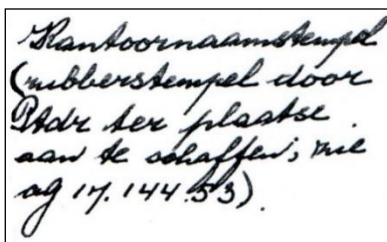 Kantoornaamstempel
(rubberstempel door
Ptdr ter plaatse
aan te schaffen; zie
ag 17.144.53).